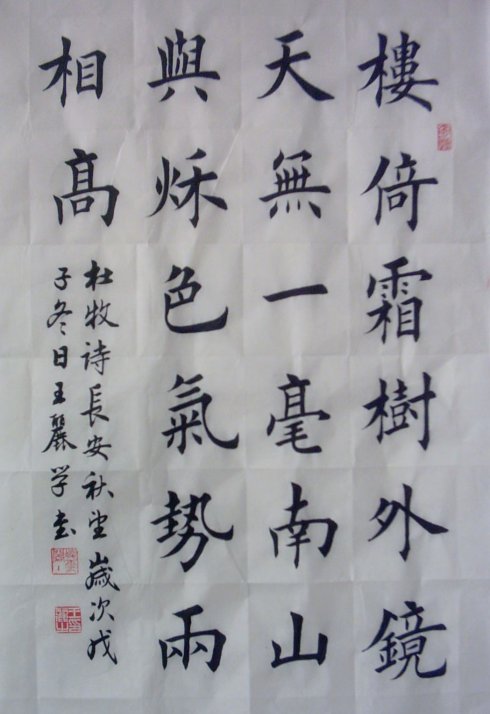 樓倚霜樹外鏡
天無一毫南山
與秌色氣勢兩
相高
杜牧诗長安秋望歲次戊
子冬日王麗学书